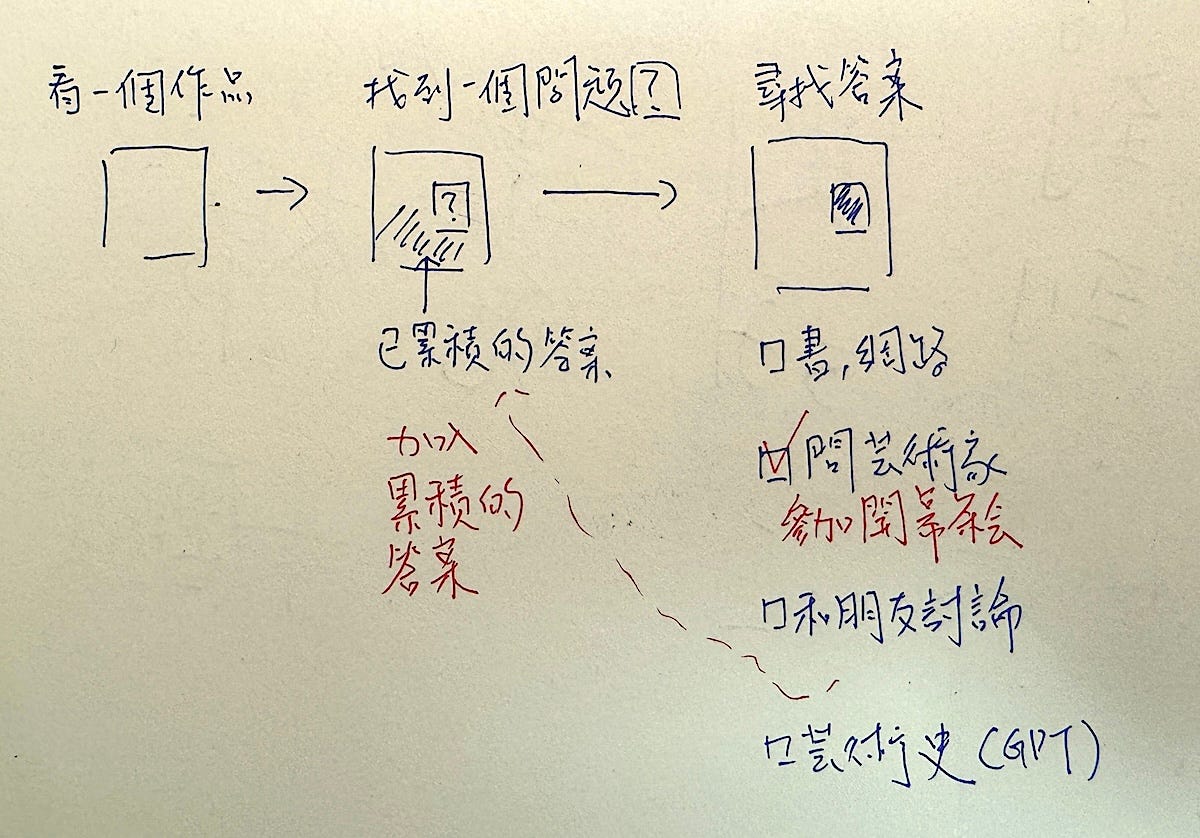 看一個作品
找到一個問題?
尋找答案
?
已累積的答案
加入
累積的
答案
口書,網路
口問芸術家
參加開幕茶会
口和朋友討論
口芸術史(GPT)